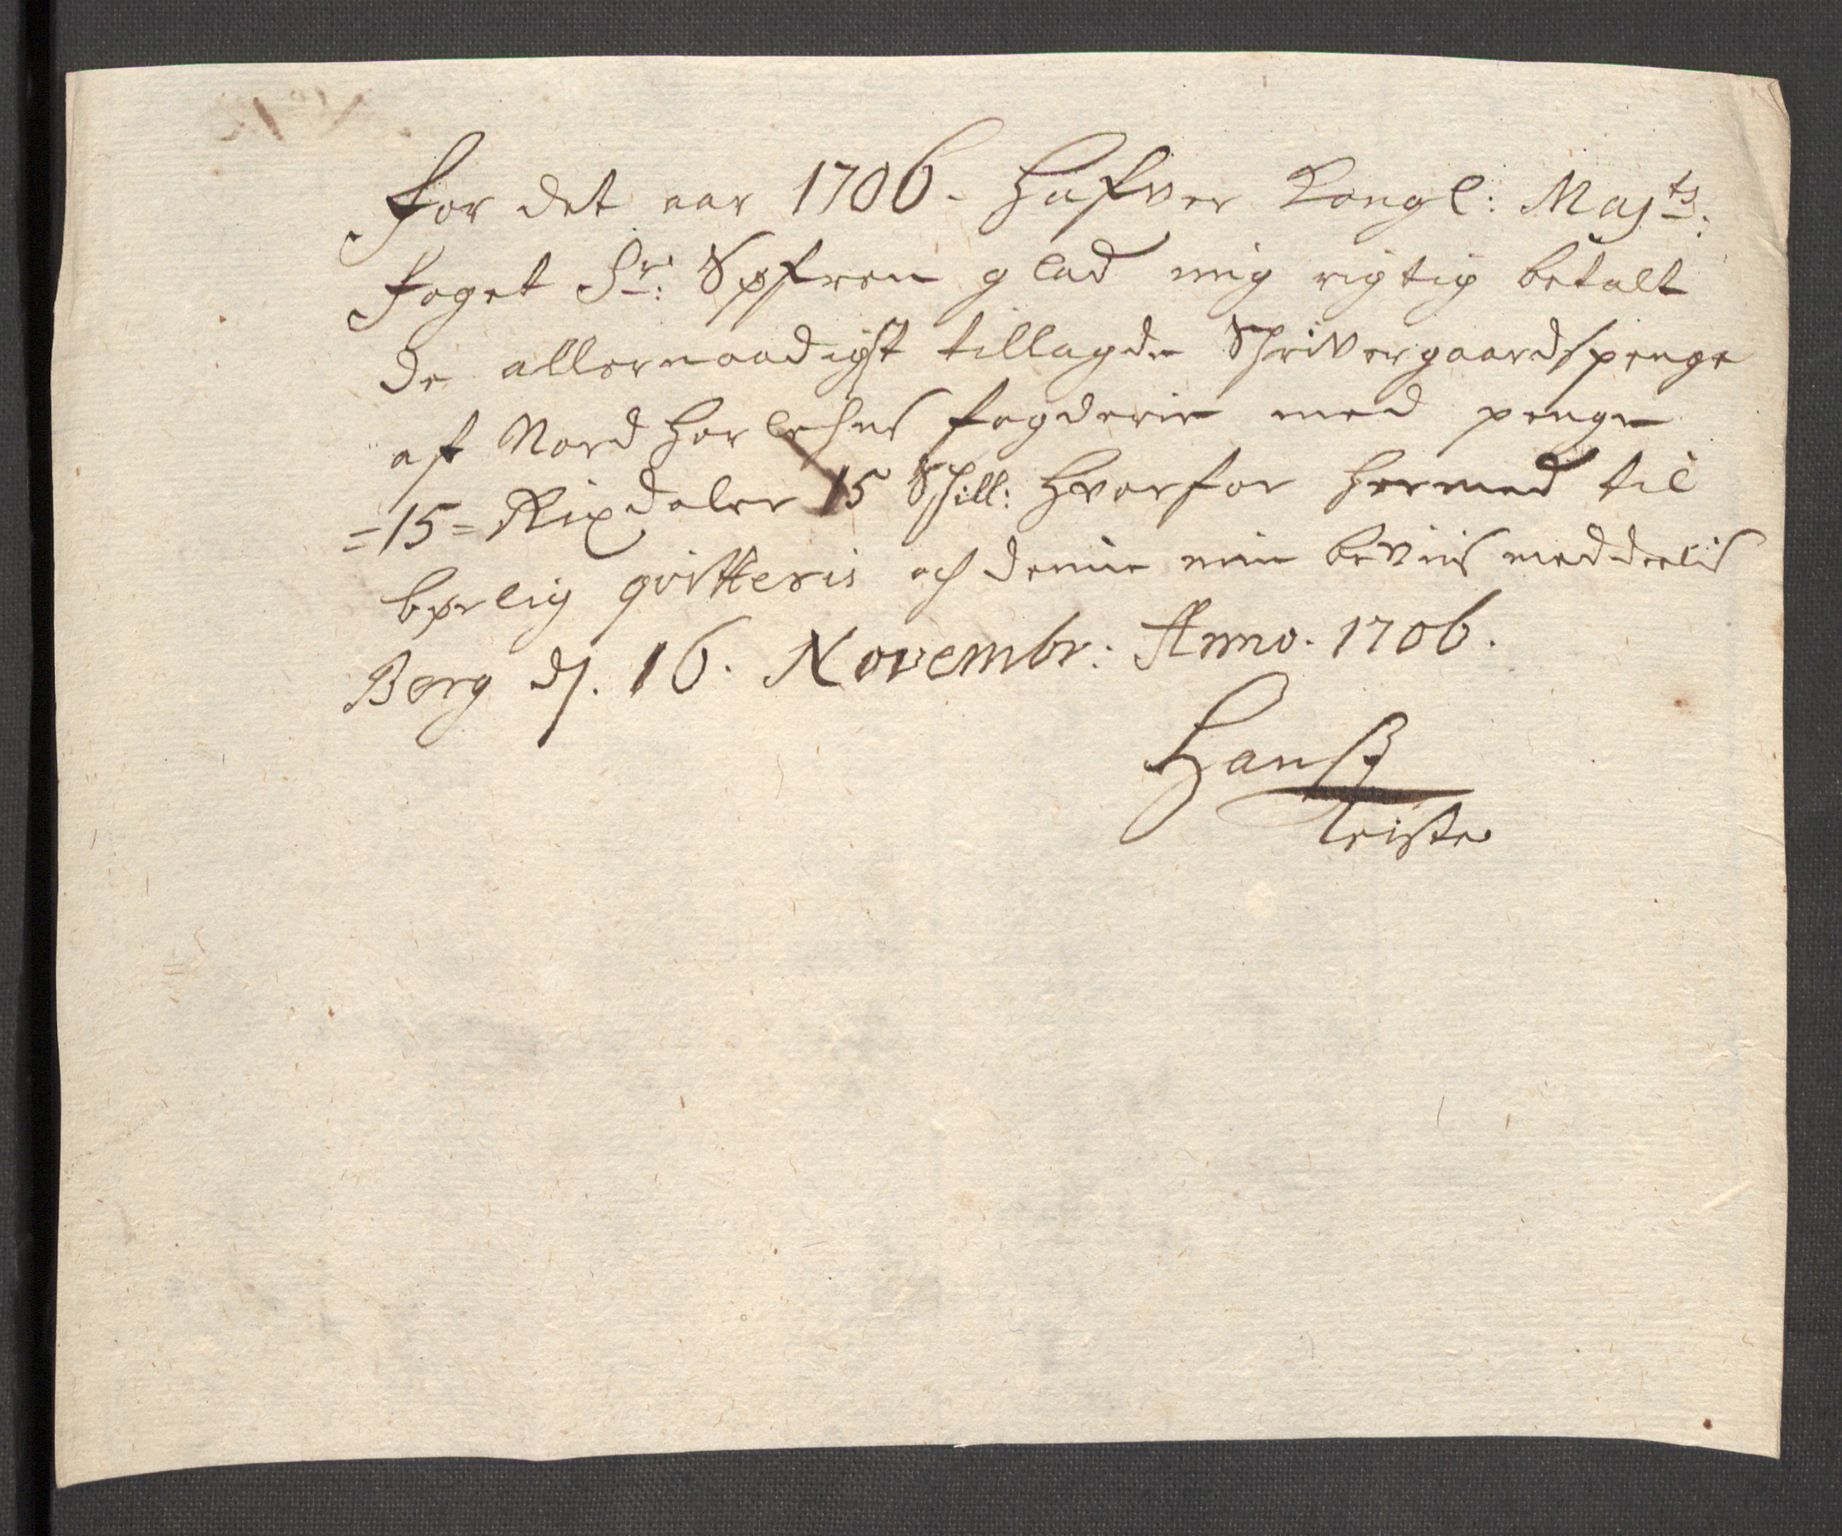 For det aar 1706. Hafver Kongl: Maj<sup>ts</sup>:
foget Sr: Søfren glad mig rigtig betalt
de allernaadigst tillagde Schrivergaardspenge
af Nordhorlehns fogderie med penge
=15= Rixdaler 15 Schill: Hvorfor hermed til
børlig qvitteris och denne min beviis meddeelis
Berg dj. 16. Novembr: Anno. 1706.
Hanß
Teiste